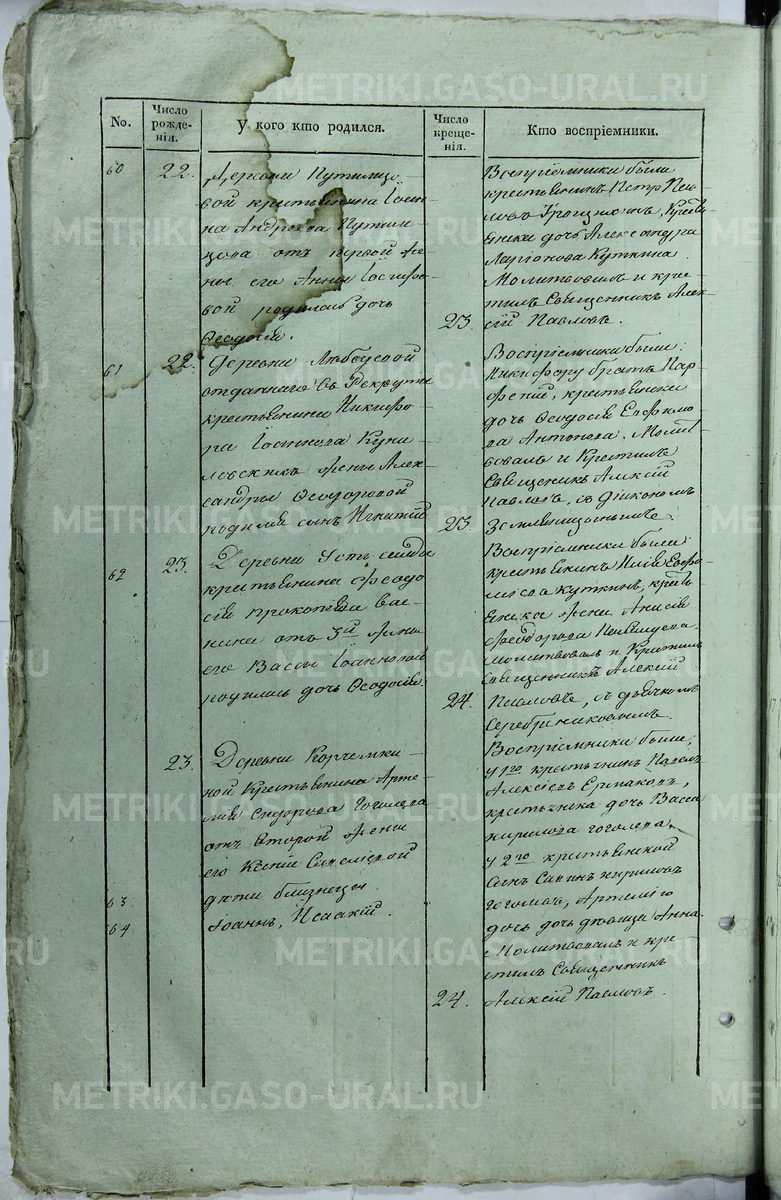 No.
Число рожде-нія.
У кого кто родился.
Число креще-нія.
Кто воспріемники.
60
22.
Деревни Путилщо-
вой крестьянина Іосифа
Андреева Путил-
цева отъ первой же-
ны его Анны Іосифо-
вой родилась дочь
Ѳеодосія.
23.
Воспріемники были
крестьянинъ Петръ Пав-
ловъ крестья-
янки дочь Александра
Ларіонова Куткина
Молитвовалъ и кре-
стилъ Священникъ Алек-
сій Павловъ.
61
22.
Деревни Любецовой
отданнаго въ Рекруты
крестьянина Никифо-
ра
жены Алек-
сандры Ѳеодоровой
родился сынъ Игнатій
23
Воспріемники были:
Никифору братъ Пар-
феній, крестьянки
дочь Ѳеодосія Евфимо-
ва Антонова. Молит-
вовалъ и Крестилъ
Священникъ Алексій
Павловъ, съ Діакономъ
Земляницынымъ.
62
23.
Деревни Усть
крестьянина Ѳеодо-
сія Прокопьева Вас-
нина отъ 3й жены
его Вассы Іоанновой
родилась дочь Ѳеодосія
24.
Воспріемники были
крестьянинъ Илія
Куткинъ, крестья-
янка жена Анисія
Ѳеодорова
молитвовалъ и Крестилъ
Священникъ Алексій
Павловъ, съ дьячкомъ
Серебрениковымъ.
23.
Деревни Корчемки-
ной Крестьянина Арте-
мія Сидорова Гоголева
отъ Второй жены
его Ксеніи Савельевой
дѣти близнецы
63
64
Іоаннъ, Исаакій.
24.
Воспріемники были,
у 1го крестьянинъ Павелъ
Алексѣевъ Ермаковъ,
крестьянка дочь Васса
Кирилова Гоголева,
у 2го крестьянской
сынъ Савинъ Кириловъ
Гоголевъ, Артемію
дочь дѣвица Анна.
Молитвовалъ и кре-
стилъ Священникъ
Алексій Павловъ.
METRIKI.GASO-URAL.RU